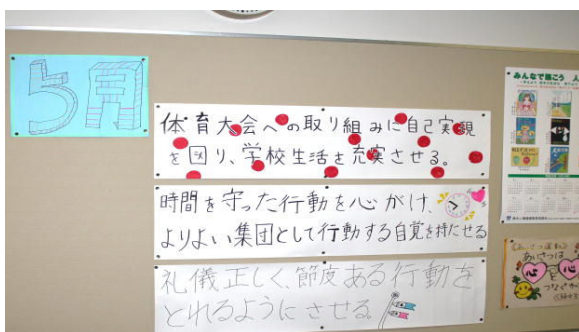 5月
体育大会への取り組みに自己実現
を図り、学校生活を充実させる。
時間を守った行動を心がけ、
よりよい集団として行動する自覚を持たせる
礼儀正しく、節度ある行動を
とれるようにさせる。
みんなで築こう 人
あいさつは
心と心を
つなぐ